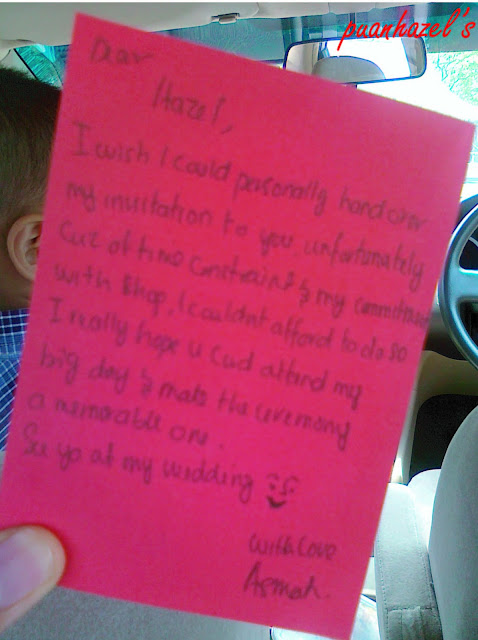 puanhazel's
Dear
Hazel,
I wish I could personally handover
my invitation to you, unfortunately
cuz of time constraint & my commitment
with shop, I couldnt afford to do so
I really hope u cud attend my
big day & make the ceremony
a memorable one.
See ya at my wedding
with love
Asmah.